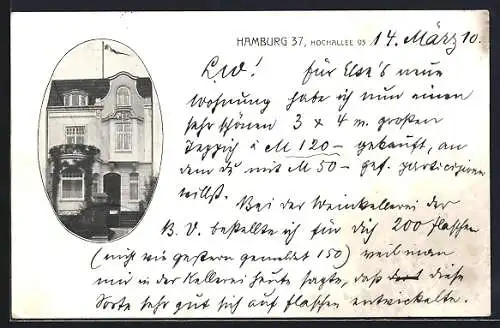 HAMBURG 37, HOCHALLEE 95 14. März 10.
L.W! für Else's neue
Wohnung habe ich nun einen
sehr schönen 3 x 4 m. großen
Teppich à M 120 - gekauft, an
dem du mit M 50 - gef. participiren
willst. Bei der Weinkellerei der
B. V. bestellte ich für dich 200 flaschen
(nicht wie gestern gemeldet 150) weil man
mir in der Kellerei heute sagte, daß diese
Sorte sehr gut sich auf flaschen entwickelte.